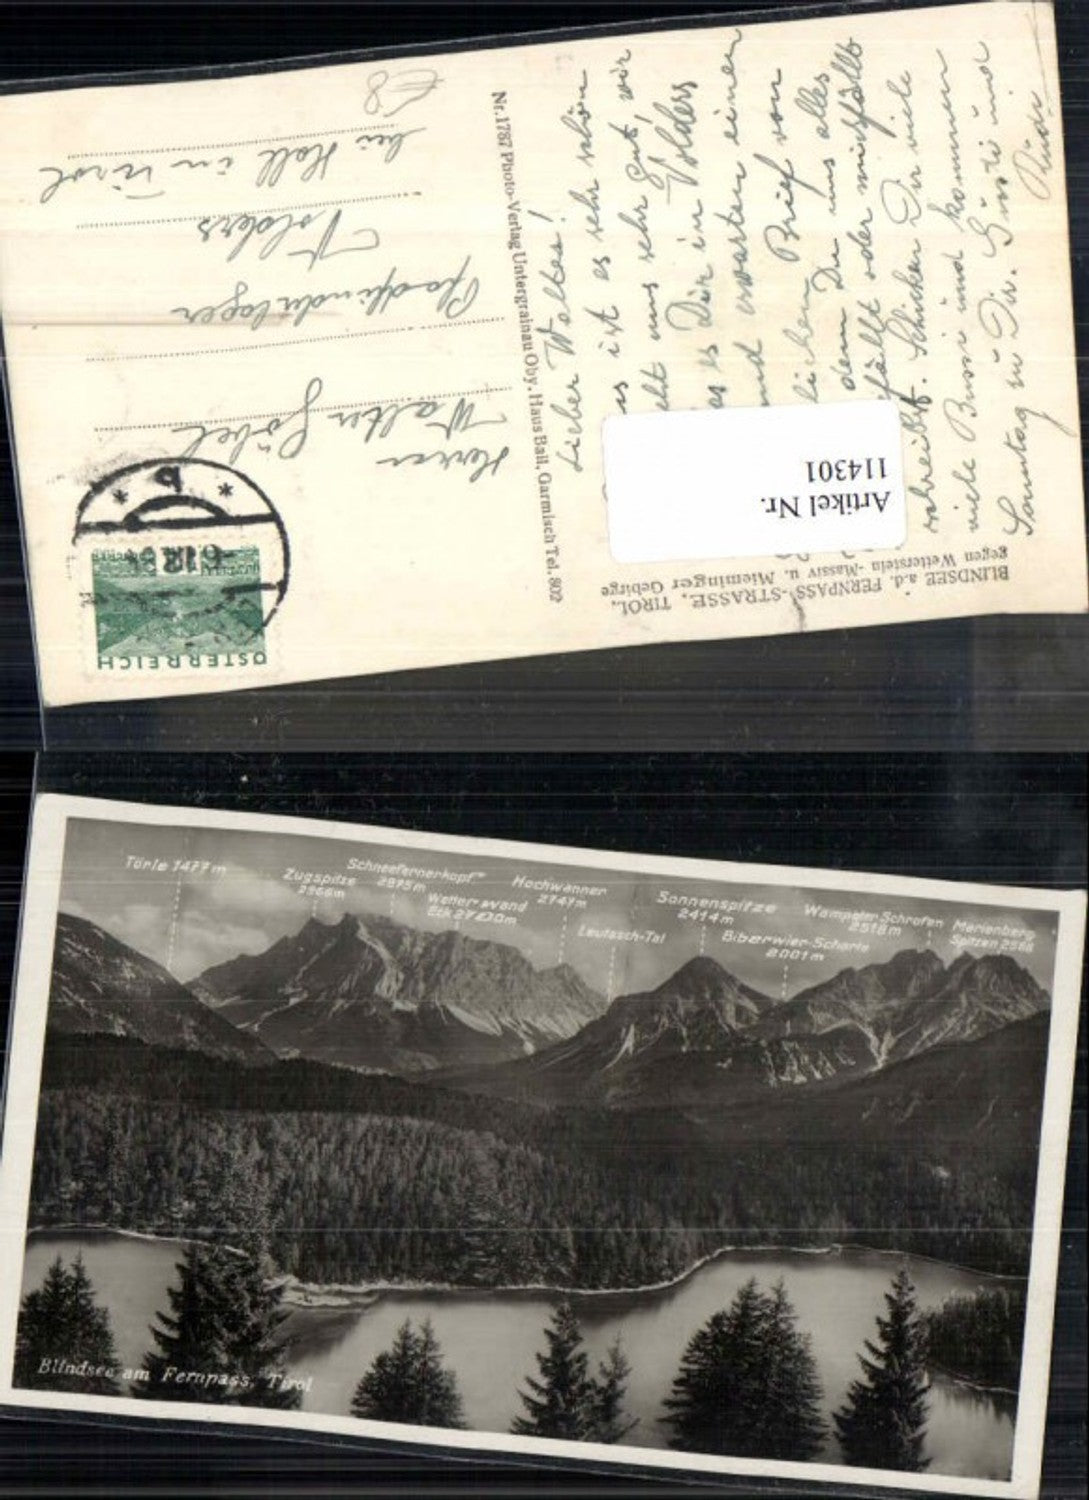 BLINDSEE a.d. FERNPASS-STRASSE, TIROL,
gegen Wetterstein-Massiv u. Mieminger Gebirge
Artikel Nr.
114301
Lieber Walter!
ist es sehr schön
uns sehr gut, wir
es Dir in Volders
und erwarten einen
lieben Brief von
dem Du uns alles
gefällt oder missfällt
schreibst. Schicken Dir viele
viele Bussi und kommen
Sonntag zu Dir. Gusti und
Nr. 1787 Photo-Verlag Untergrainau Oby. Haus Ball, Garmisch Tel. 802
ÖSTERREICH
Herrn
Walter Göbel
Pfadfinderlager
Volders
bei Hall in Tirol
Törle 1477m
Zugspitze
2966m
Schneefernerkopf
2875m
Wetterwand
Eck 2743,0m
Hochwanner
2747m
Leutasch-Tal
Sonnenspitze
2414m
Biberwier-Scharte
2001m
Wampeter Schrofen
2518m
Marienberg
Spitzen 2561
Blindsee am Fernpass, Tirol